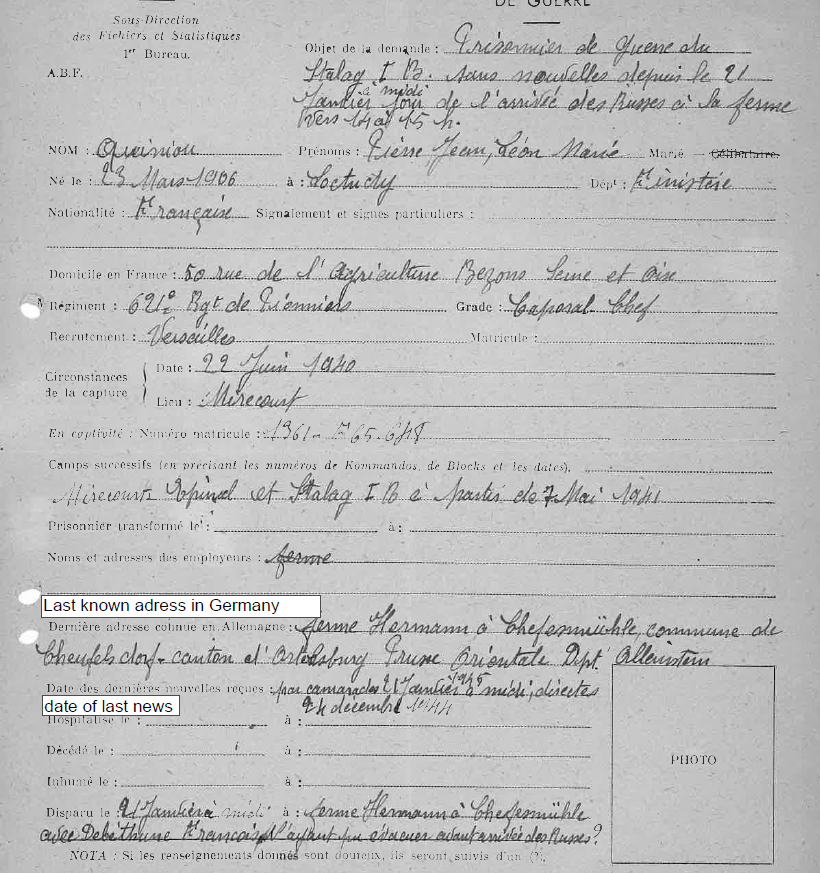 DE GUERRE
Sous-Direction
des Fichiers et Statistiques
1er Bureau.
A.B.F.
Objet de la demande : Prisonnier de guerre du
Stalag I B. sans nouvelles depuis le 21
à midi
Janvier jour de l'arrivée des Russes à la ferme
vers 14 à 15 h.
NOM : Quiniou Prénoms : Pierre Jean, Léon Marie Marié - Célibataire.
Né le : 23 Mars 1906 à : Loctudy Dépt : Finistère
Nationalité : Française Signalement et signes particuliers :
Domicile en France : 50 rue de l'Agriculture Bezons Seine et Oise
Régiment : 621e Rgt de Pionniers Grade : Caporal-Chef
Recrutement : Versailles Matricule :
Circonstances de la capture Date : 22 Juin 1940
Lieu : Mirecourt
En captivité : Numéro matricule : 1361
Camps successifs (en précisant les numéros de Kommandos, de Blocks et les dates).
Mirecourt Epinal et Stalag I B à partir de 7 Mai 1941
Prisonnier transformé le : à :
Noms et adresses des employeurs : ferme
Last known adress in Germany
Dernière adresse connue en Allemagne : ferme Hermann à Chefesmühle, commune de
Cheufelsdorf - canton d'Ortelsburg Prusse Orientale Dept. Allenstein
Date des dernières nouvelles reçues : par camarades 21 Janvier 1945 à midi, directes
date of last news
24 décembre 1944
Hospitalisé le : à :
Décédé le : à :
Inhumé le : à :
PHOTO
Disparu le 21 Janvier à midi à : ferme Hermann à Chefesmühle
avec Debéthune François, n'ayant pu évacuer avant arrivée des Russes ?
NOTA : Si les renseignements donnés sont douteux, ils seront suivis d'un (?).